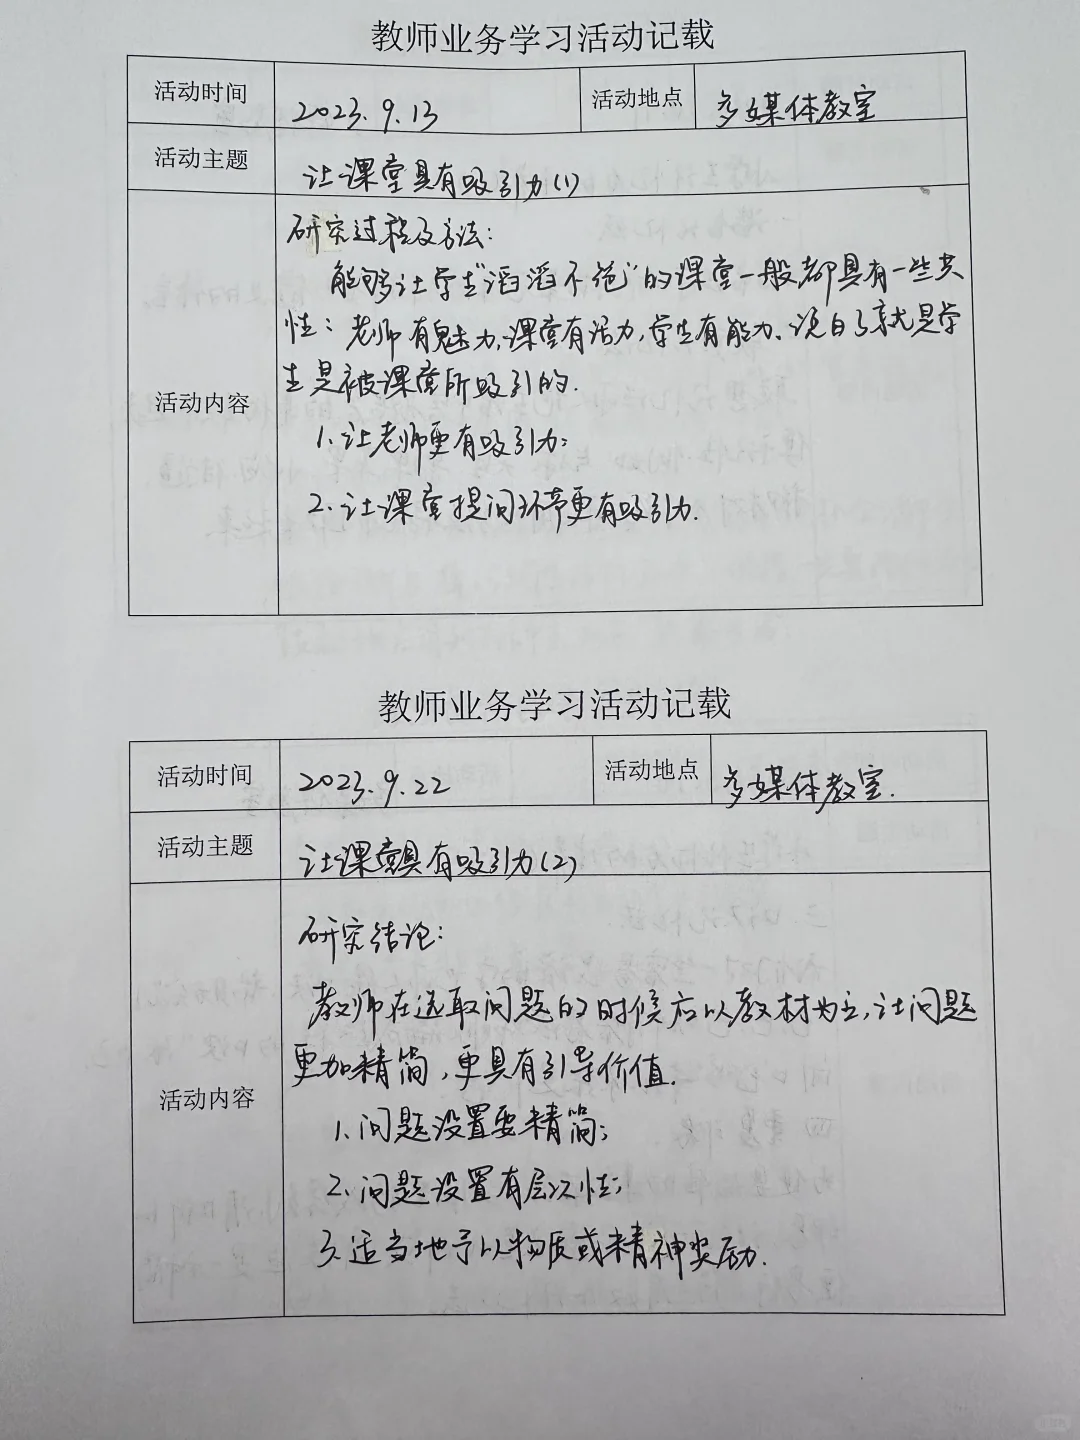 教师业务学习活动记载
活动时间 2023.9.13 活动地点 多媒体教室
活动主题 让课堂具有吸引力(1)
活动内容
研究过程及方法:
能够让学生"滔滔不绝"的课堂一般都具有一些共
性:老师有魅力,课堂有活力,学生有能力、说白了就是学
生是被课堂所吸引的.
1.让老师更有吸引力;
2.让课堂提问环节更有吸引力.
教师业务学习活动记载
活动时间 2023.9.22 活动地点 多媒体教室.
活动主题 让课堂具有吸引力(2)
活动内容
研究结论:
教师在选取问题的时候应以教材为主,让问题
更加精简,更具有引导价值.
1.问题设置要精简;
2.问题设置有层次性;
3.适当地予以物质或精神奖励.